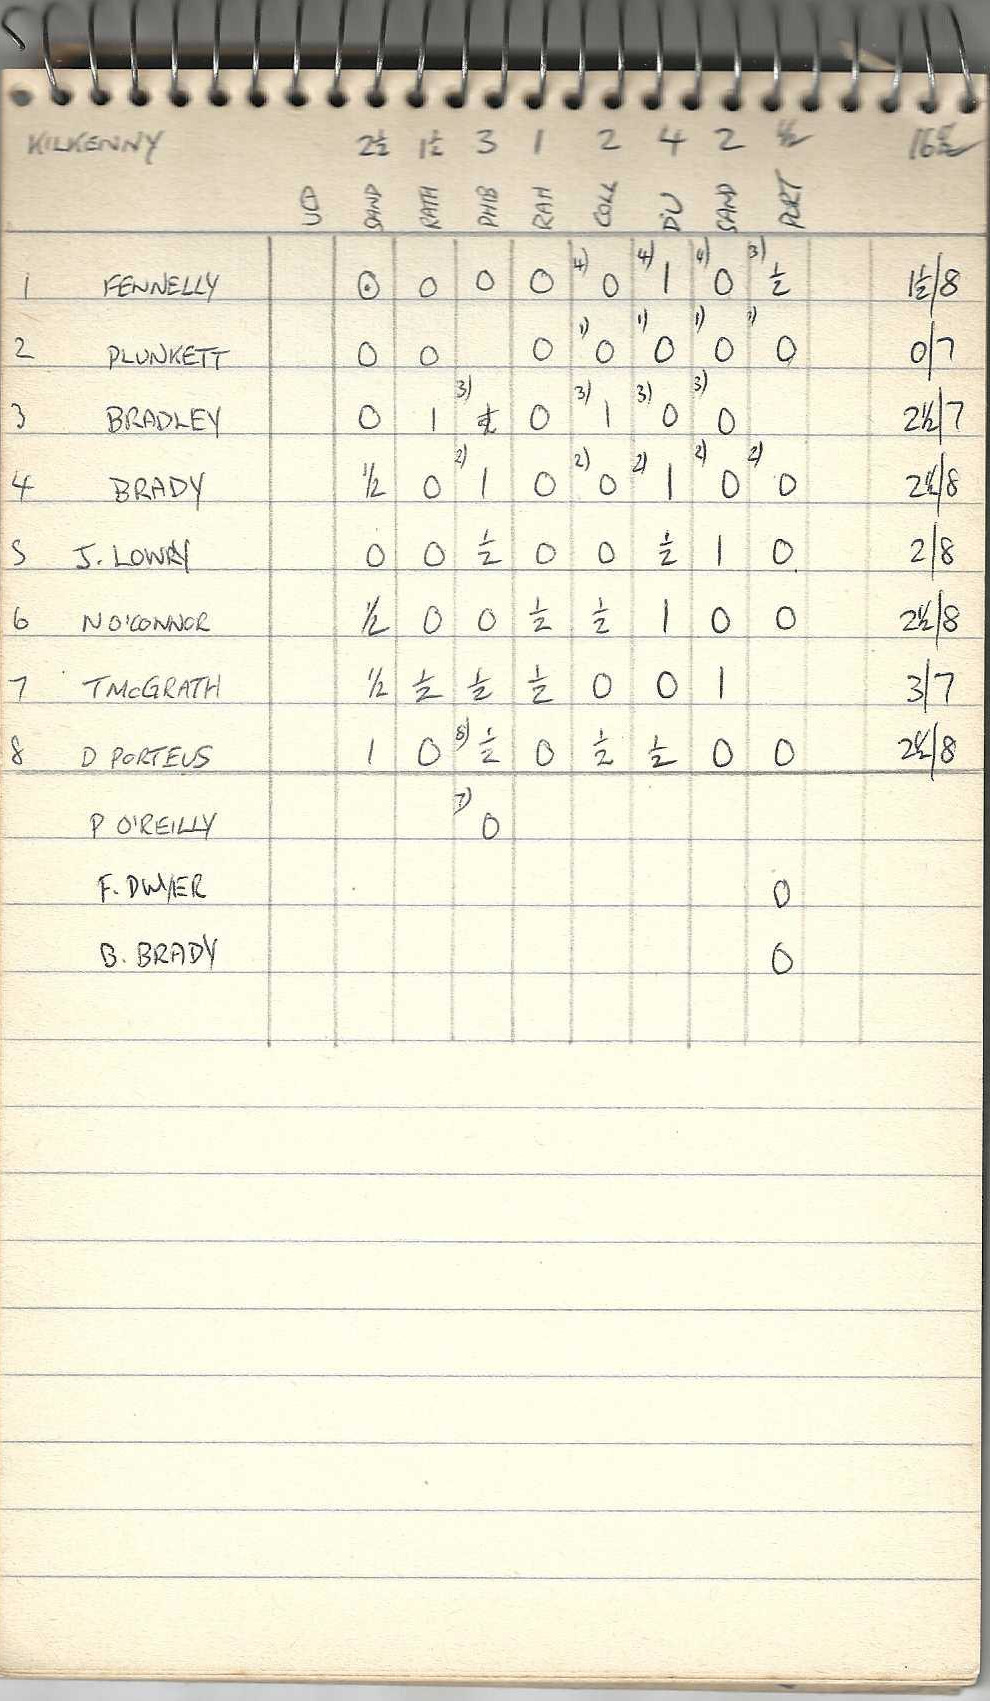 KILKENNY 2½ 1½ 3 1 2 4 2 ½ 16½
SAND RATH PHIB RAH COLL DU SAND PORT
1 FENNELLY 0 0 0 0 4) 0 4) 1 4) 0 3) ½ 1½/8
2 PLUNKETT 0 0 0 1) 0 1) 0 1) 0 1) 0 0/7
3 BRADLEY 0 1 3) ½ 0 3) 1 3) 0 3) 0 2½/7
4 BRADY ½ 0 2) 1 0 2) 0 2) 1 2) 0 2) 0 2½/8
5 J. LOWRY 0 0 ½ 0 0 ½ 1 0 2/8
6 N O'CONNOR ½ 0 0 ½ ½ 1 0 0 2½/8
7 T McGRATH ½ ½ ½ ½ 0 0 1 3/7
8 D PORTEUS 1 0 8) ½ 0 ½ ½ 0 0 2½/8
P O'REILLY 7) 0
F. DWYER 0
B. BRADY 0